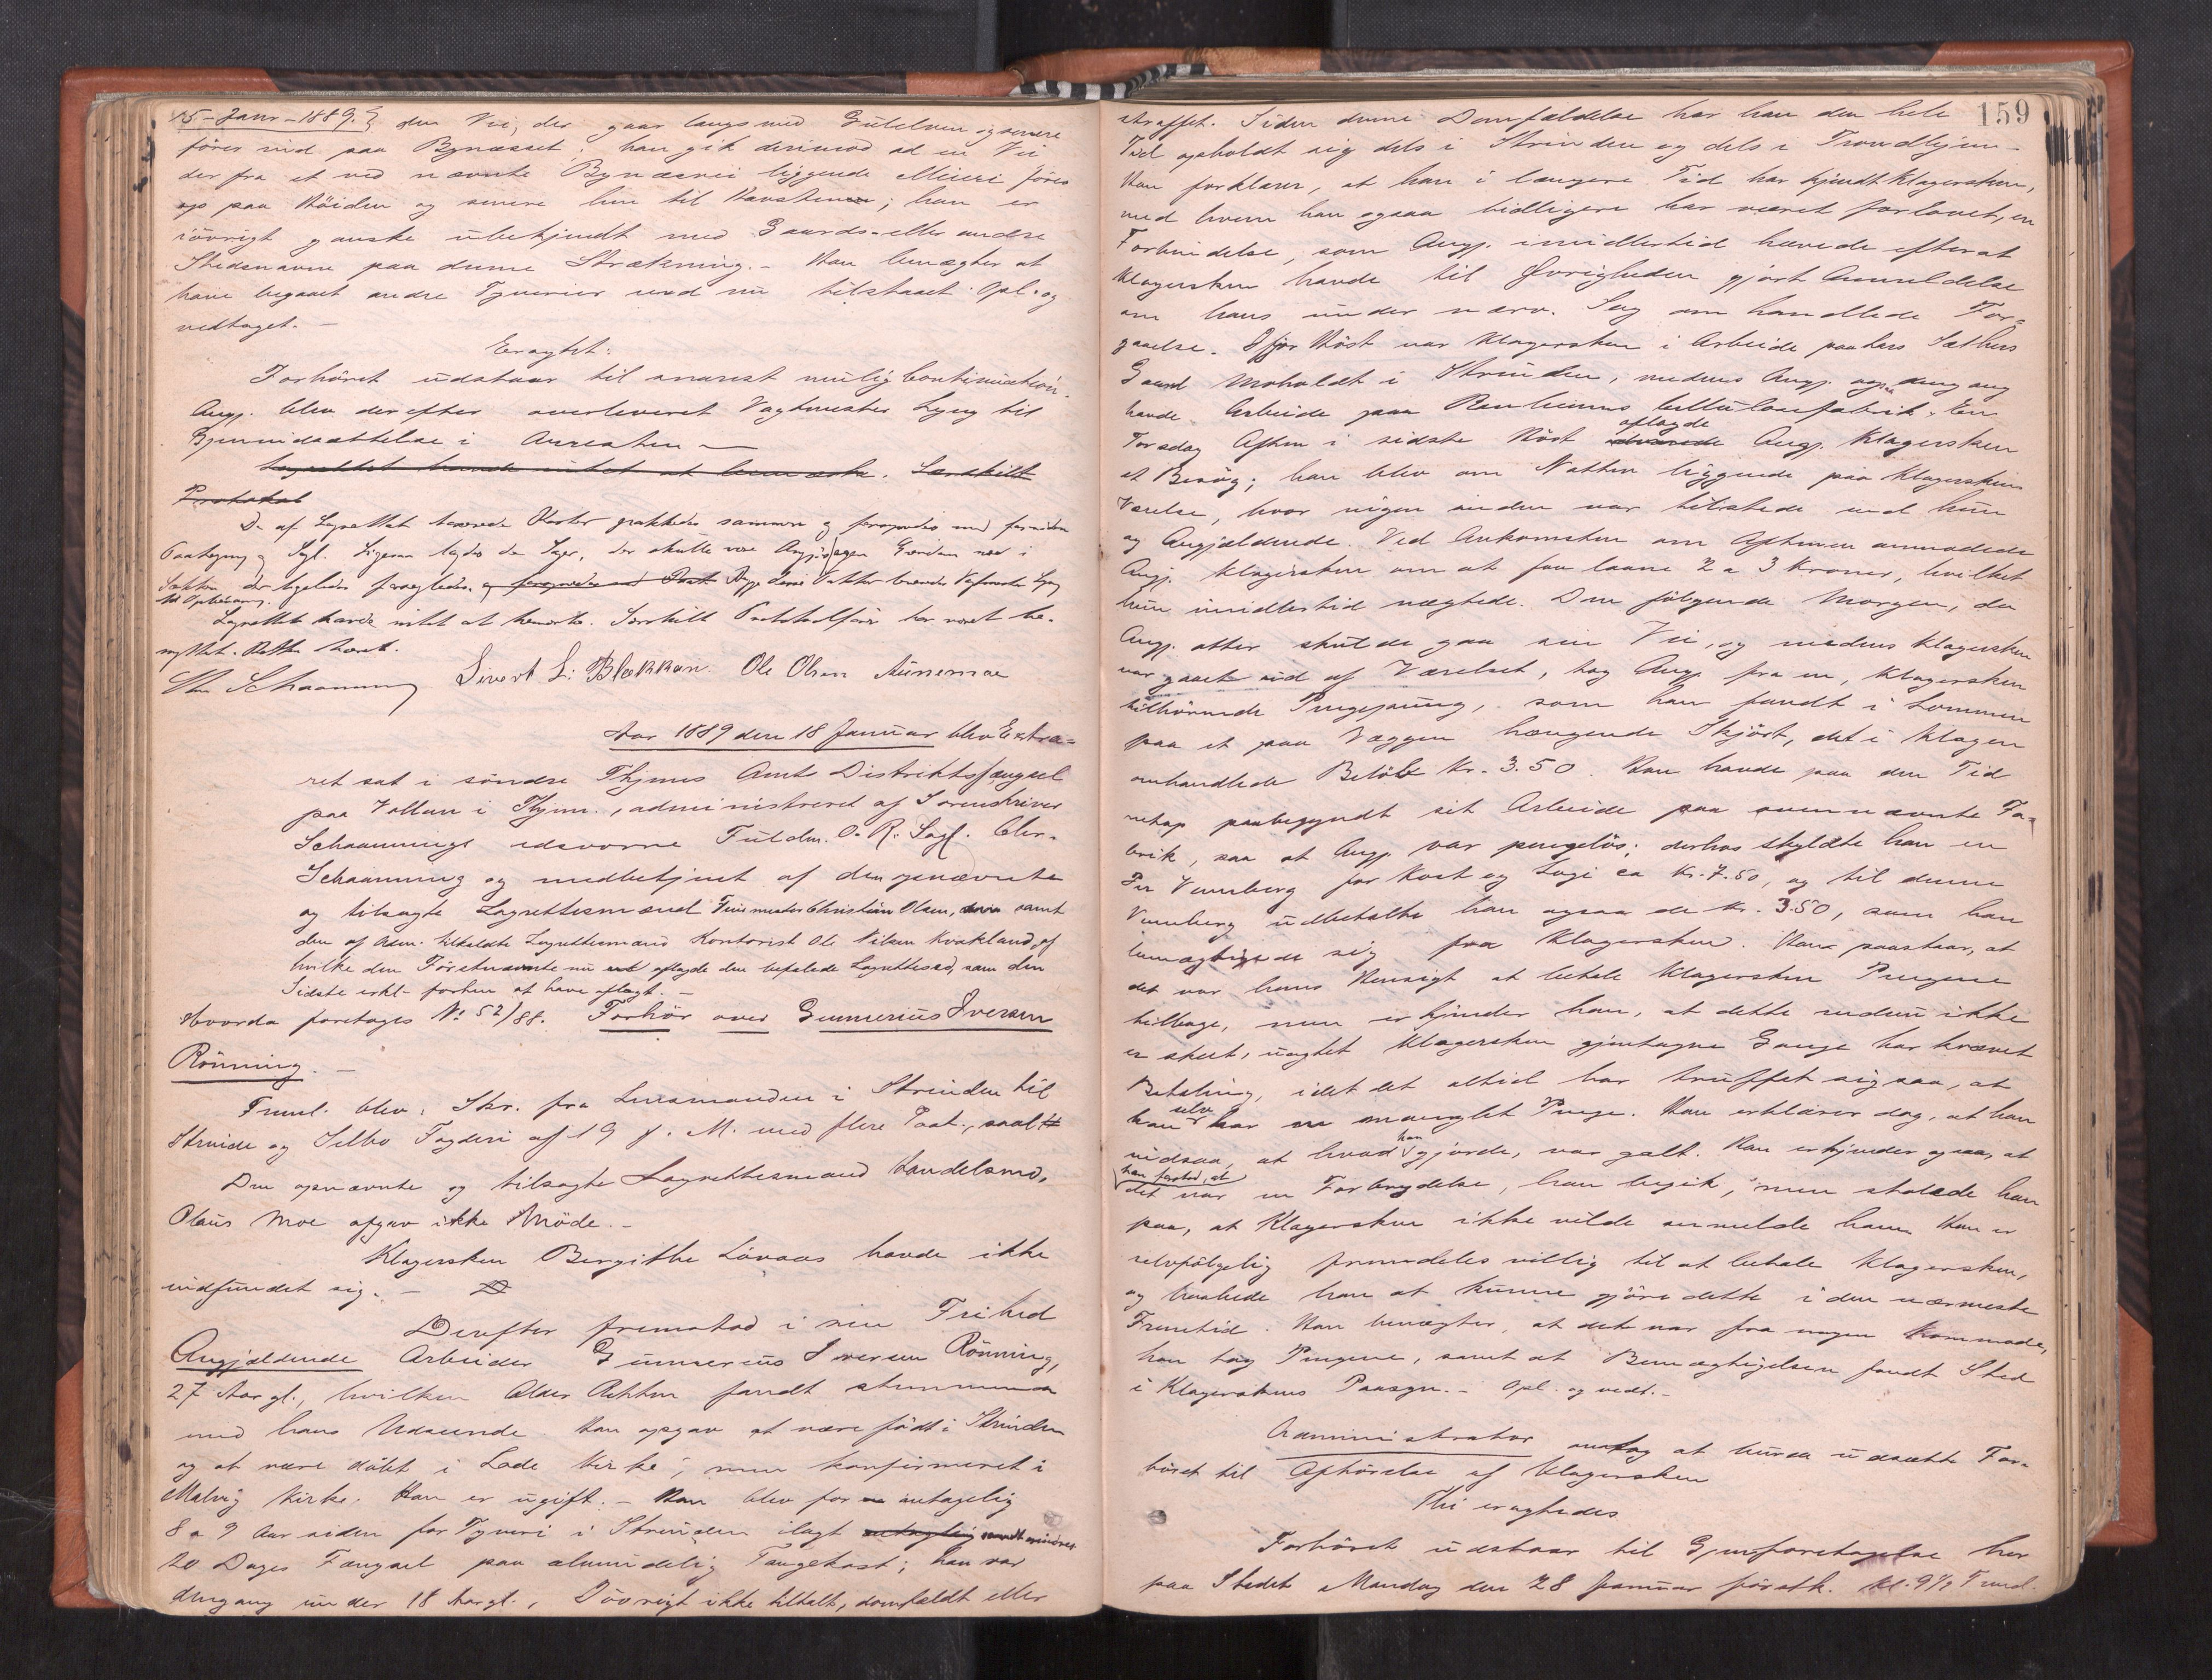 15 - Janr - 1889. den Vei, der gaar langs med Gulelven og senere
fører ind paa Bynæsset; han gik derimod ad en Vei
der fra et ved nævnte Bynæsvei liggende Meieri føres
op paa Høiden og senere hen til Havstenen; han er
iøvrigt ganske ubekjendt med Gaards- eller andre
Stedsnavne paa denne Strækning. - Han benægter at
have begaaet andre Tyverier end nu tilstaaet. Opl. og
vedtaget. -
Eragtet:
Forhøret udstaar til snarest mulig Continuation.
Angj. blev derefter overleveret Vagtmester Lyng til
Gjenindsættelse i Arresten -
Lagrettet havde intet at bemærke. Særskilt
Protokol
De af Lagrettet haverede Koster pakkedes sammen og forsynedes med fornøden
Paategning og Segl. Ligesaa lagdes de Sager, der skulle være Angj's egen Eiendom ned i
Sækken der ligeledes forsegledes, Begge disse Pakker leveredes Vagtmester Lyng
til Opbevaring.
Lagrettet havde intet at bemærke. Særskilt Protokolfører har været be-
nyttet. Retten hævet.
Chr Schaanning Sivert L: Blekkan. Ole Olsen Aunemoe
Aar 1889 den 18 Januar blev Extra-
ret sat i søndre Thjems Amts Distriktsfængsel
paa Vollan i Thjem., administreret af Sorenskriver
Schaannings edsvorne Fuldm. O. R. Sagf. Chr.
Schaanning og medbetjent af den opnævnte
og tilsagte Lagrettesmænd Garvermester Christian Olsen, samt
den af Adm. tilkaldte Lagrettesmand Kontorist Ole Nilsen Kvakland, af
hvilke den Førstnævnte nu aflagde den befalede Lagrettesed, som den
Sidste erkl. forhen at have aflagt. -
Hvorda foretages No 52/88. Forhør over Gunnerius Iversen
Rønning. -
Freml. blev: Skr. fra Lensmanden i Strinden til
Strinde og Selbo Fogderi af 19 f. M. med flere Paat., saal #
Den opnævnte og tilsagte Lagrettesmand Handelsmd.
Olaus Moe afgav ikke Møde. -
Klagersken Bergithe Løvaas havde ikke
indfundet sig. -
Derefter fremstod i sin Frihed
Angjældende Arbeider Gunnerius Iversen Rønning,
27 Aar gl., hvilken Alder Retten fandt stemmende
med hans Udseende. Han opgav at være født i Strinden
og at være døbt i Lade Kirke, men konfirmeret i
Malvig Kirke. Han er ugift. - Han blev for antagelig
8 a 9 Aar siden for Tyveri i Strinden ilagt antagelig mindre
20 Dages Fængsel paa almindelig Fangekost; han var
dengang under 18 Aar gl., Iøvrigt ikke tiltalt, domfældt eller
159
straffet. Siden denne Domfældelse har han den hele
Tid opholdt sig dels i Strinden og dels i Trondhjem -
Han forklarer, at han i længere Tid har kjendt Klagersken,
med hvem han ogsaa tidligere har været forlovet, en
Forbindelse, som Angj. imidlertid hævede efterat
Klagersken havde til Øvrigheden gjort Anmeldelse
om hans under nærv. Sag om handlede For-
gaaelse. Ifjor Høst var Klagersken i Arbeide paa Lars Sæthers
Gaard Moholdt i Strinden, medens Angj. ogs. dengang
havde Arbeide paa Ranheims Cellulosefabrik. En
aflagde
Torsdag Aften i sidste Høst Angj. Klagersken
et Besøg; han blev om Natten liggende paa Klagerskens
Værelse, hvor ingen anden var tilstede end hun
og Angjældende. Ved Ankomsten om Aftenen anmodede
Angj. Klagersken om at faa laane 2 a 3 Kroner, hvilket
hun imidlertid nægtede. Den følgende Morgen, da
Angj. atter skulde gaa sin Vei, og medens Klagersken
var gaaet ud af Værelset, tog Angj. fra en, Klagersken
tilhørende Pengepung, som han fandt i Lommen
paa et paa Væggen hængende Skjørt, det i Klagen
omhandlede Beløb Kr. 3.50. Han havde paa den Tid
netop paabegyndt sit Arbeide paa ovennævnte Fa-
brik, saa at Angj. var pengeløs; derhos skyldte han en
Per Venberg for Kost og Logi ca Kr. 7.50, og til denne
Venberg udbetalte han ogsaa de Kr. 3.50, som han
bemægtigede sig fra Klagersken. Han paastaar, at
det var hans Hensigt at betale Klagersken Pengene
tilbage, men erkjender han, at dette endnu ikke
er skeet, uagtet Klagersken gjentagne Gange har krævet
Betaling, idet det altid har truffet sig saa, at
selv
han har manglet Penge. Han erklærer dog, at han
han
indsaa, at hvad gjorde, var galt. Han erkjender ogsaa, at
han forstod, at
det var en Forbrydelse, han begik, men stolede han
paa, at Klagersken ikke vilde anmelde ham. Han er
selvfølgelig fremdeles villig til at betale Klagersken,
og haabede han at kunne gjøre dette i den nærmeste
Fremtid. Han benægter, at det var fra nogen Kommode,
han tog Pengene, samt at Bemægtigelsen fandt Sted
i Klagerskens Paasyn. - Opl. og vedt. -
Administrator antog at burde udsætte For-
høret til Afhørelse af Klagersken
Thi eragtedes
Forhøret udstaar til Gjenforetagelse her
paa Stedet Mandag den 28 Januar førstk. Kl. 9½ Fmd.